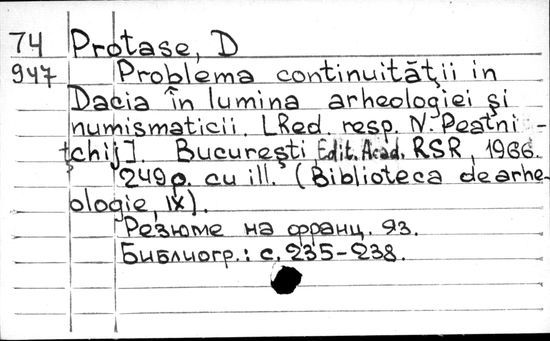 74 Protase, D
947 Problema continuităţii in
Dacia în lumina arheologiei şi
numismaticii. [Red. resp. N. Peatni-
ţchij]. Bucureşti, Edit. Acad. RSR, 1966.
249p. cu ill. (Biblioteca de arhe-
ologie, IX).
Резюме на франц. яз.
Библиогр.: с. 235-238.